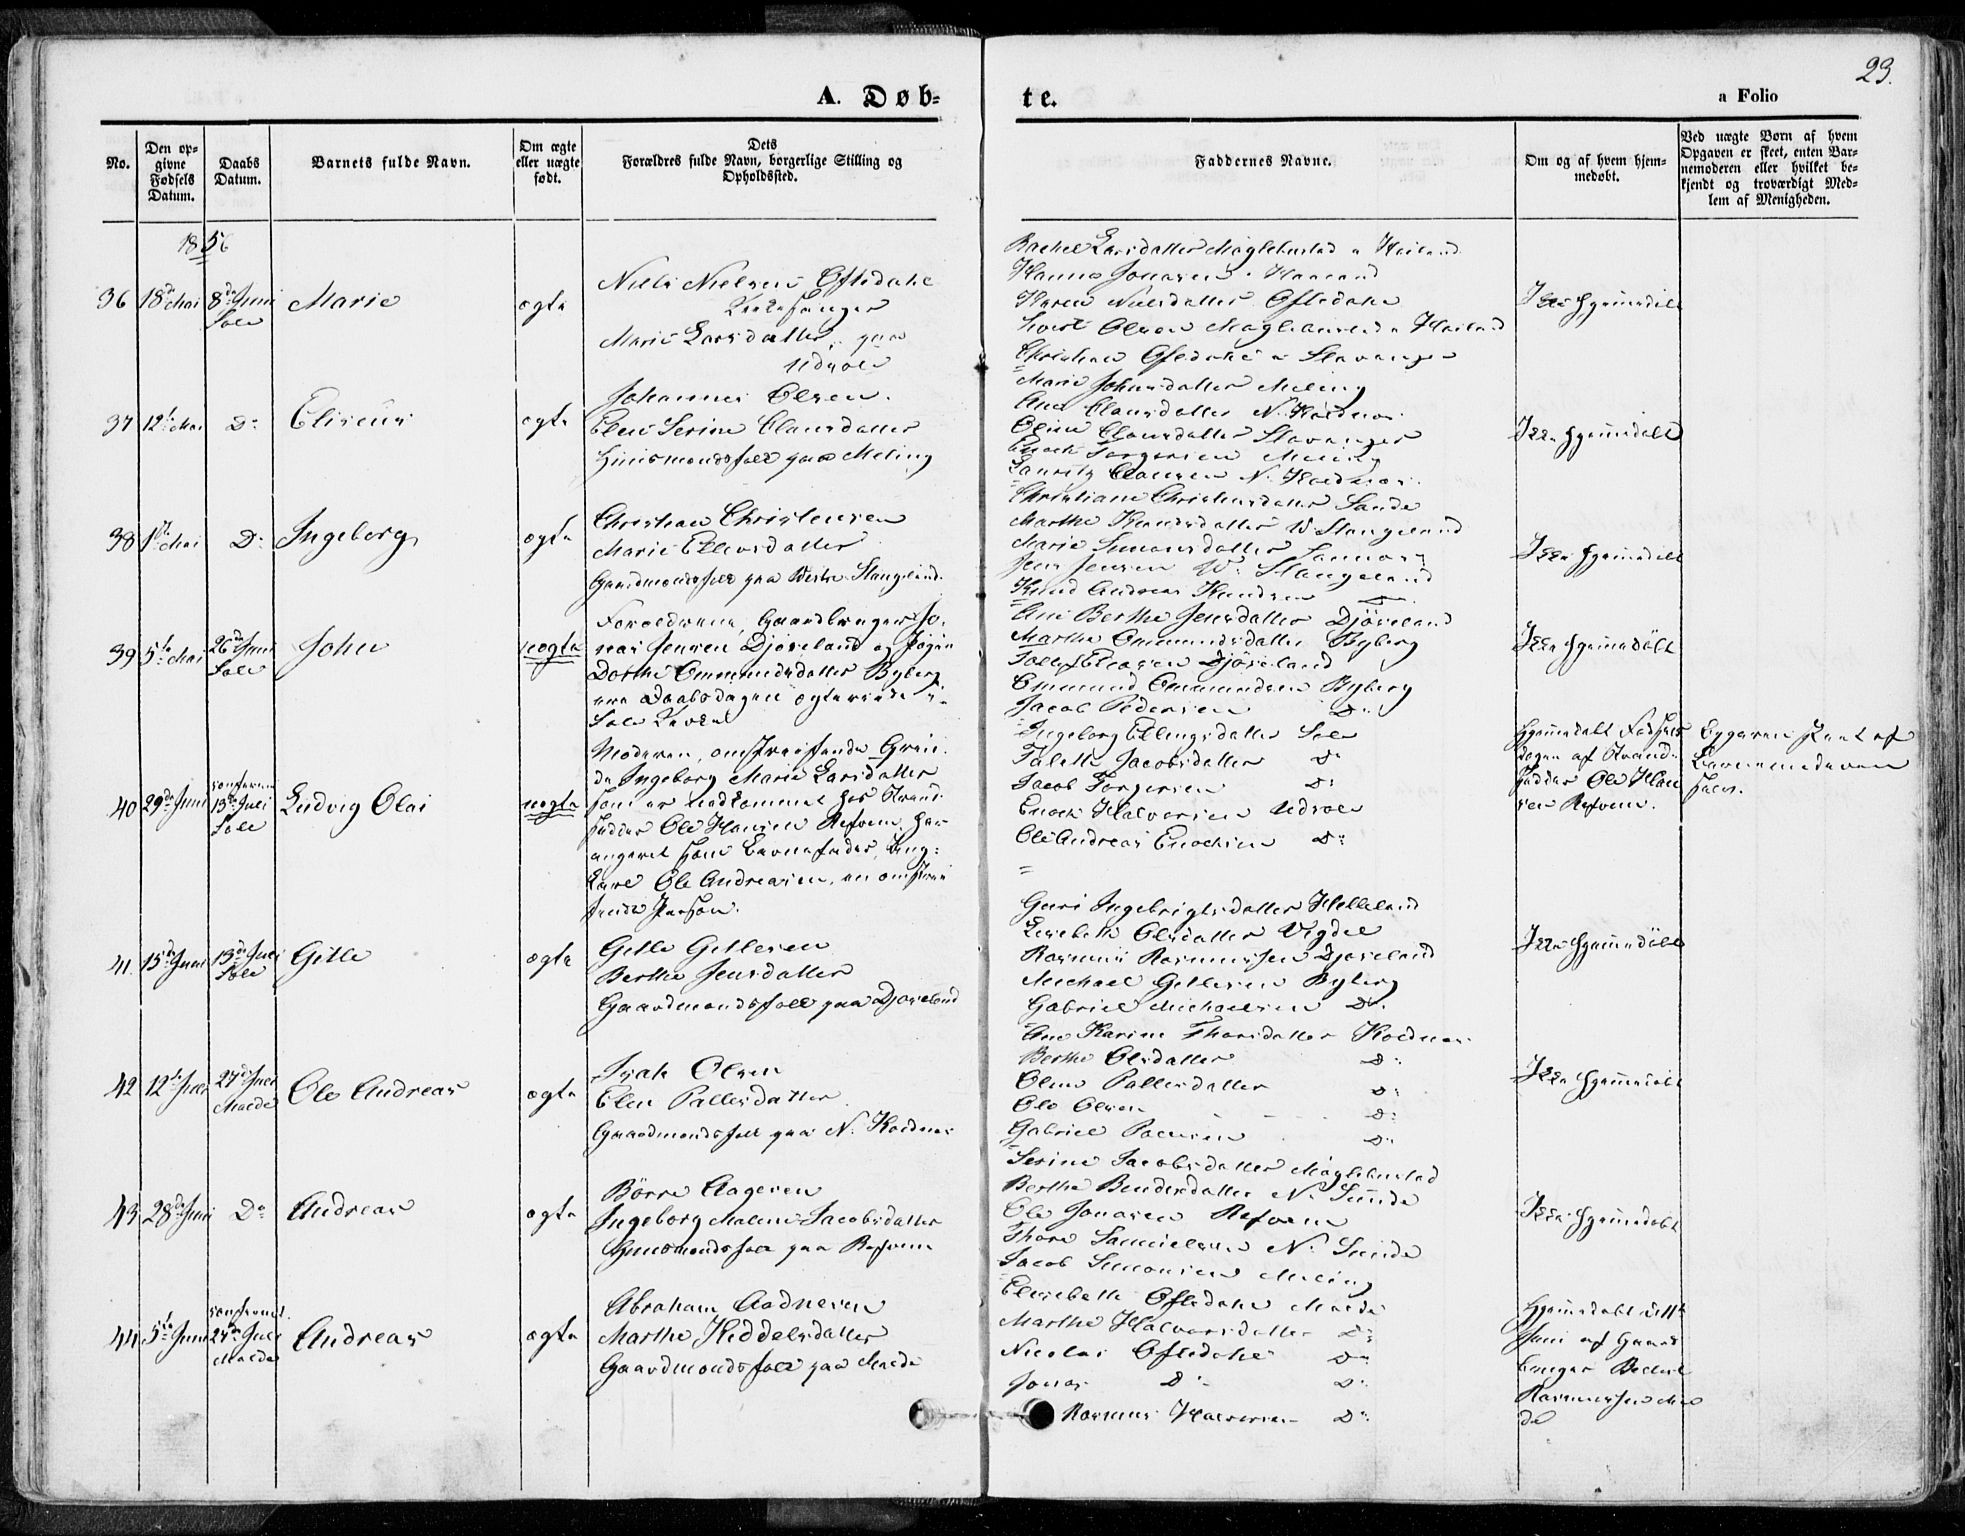 23.
A. Døb-
te.
a Folio
No.
Den op-
givne
Fødsels
Datum.
Daabs
Datum.
Barnets fulde Navn.
Om ægte
eller uægte
født.
Dets
Forældres fulde Navn, borgerlige Stilling og
Opholdssted.
Faddernes Navne.
Om og af hvem hjem-
medøbt.
Ved uægte Børn af hvem
Opgaven er skeet, enten Bar-
nemoderen eller hvilket be-
kjendt og troværdigt Med-
lem af Menigheden.
1856
36 18de Mai 8de Juni
Sole
Marie
ægte
Niels Nielsen Oftedahl
Kirkesanger
Marie Larsdatter, paa
Udsole
Rachel Larsdatter Maglehustad
Hannes Jonasen
Karen Nielsdatter Oftedahl
Olsen
Christian Oftedahl Stavanger
Ikke hjemmedøbt
37 12te Mai Do
Eliseus
ægte
Johannes Olsen.
Elen Serine Clausdatter
Huusmandsfolk paa Meling
Marie Johnsdatter Meling
Ane Clausdatter N. Koldnæs
Oline Clausdatter Stavanger
Enoch Torgersen Meling
Lauritz Clausen N. Koldnæs.
Ikke hjemmedøbt
38 1ste Mai Do
Ingeborg
ægte
Christian Christensen
Marie Ellevsdatter
Gaardmandsfolk paa Vestre Stangeland.
Christiane Christensdatter Sande
Marthe Knudsdatter V. Stangeland
Marie Simonsdatter
Jens Jensen V. Stangeland
Knud Andreas Knudsen Do
Ikke hjemmedøbt
39 5te Mai 26de Juni
Sole
John
uægte
Forældrene, Gaardbruger Jo-
nas Jensen Djøseland og Pigen
Dorthe Ommundsdatter Byberg
ere Daabsdagen ægteviede i
Sole Kirke
Ane Berthe Jensdatter Djøseland
Marthe Ommundsdatter Byberg
Tollef Eliasen Djøseland
Ommund Ommundsen Byberg
Jacob Pedersen Do
Ikke hjemmedøbt
40 29de Juni
13de Juli
Sole
Ludvig Olai
uægte
Moderen, omstreifende Qvin-
de Ingeborg Marie Larsdatter
som er nedkommet hos Strand-
sidder Ole Hansen Ræfsem, har
angivet som Barnefader, Ung-
karl Ole Andreasen, en omstrei-
fende Person.
Ingeborg Ellingsdatter Sole
Talette Jacobsdatter Do
Jacob Torgersen Do
Enoch Halvorsen Udsole
Ole Andreas Enochsen Do
Hjemmedøbt Fødsels-
dagen af Strand-
sidder Ole Han-
sen Ræfsem.
Opgaven skeet af
Barnemoderen
selv.
41 15de Juni 13de Juli
Sole
Gitle
ægte
Gitle Gitlesen
Berthe Jensdatter
Gaardmandsfolk paa Djøseland
Guri Ingebrigtsdatter Helleland
Lisebeth Olsdatter Vigdel
Rasmus Rasmussen Djøseland
Michael Gitlesen Byberg
Gabriel Michaelsen Do.
Ikke hjemmedøbt
42 12te Juli 27de Juli
Malde
Ole Andreas
ægte
Isak Olsen
Elen Pallesdatter
Gaardmandsfolk paa N. Koldnæs
Ane Karine Thorsdatter Koldnæs.
Berthe Olsdatter Do
Oline Pallesdatter Do
Ole Olsen Do
Gabriel Do
Ikke hjemmedøbt
43 28de Juni Do
Andreas
ægte
Börre Aagesen
Ingeborg Malene Jacobsdatter
Huusmandsfolk paa Ræfsem
Serine Jacobsdatter Maglehustad
Berthe N. Sunde
Ole Jonasen Ræfsem
Thore Samuelsen N. Sunde
Jacob Simonsen Meling
Ikke hjemmedøbt
44 5te Juni
27de Juli
Malde
Andreas
ægte
Abraham Aadnesen
Marthe Kiddelsdatter
Gaardmandsfolk paa Malde
Elisebeth Oftedahl Malde
Marthe Halvorsdatter Do
Nicolai Oftedahl Do
Jonas Do Do
Rasmus Halvorsen Do
Hjemmedøbt d. 11te
Juni af Gaard-
bruger
Rasmussen Mal-
de